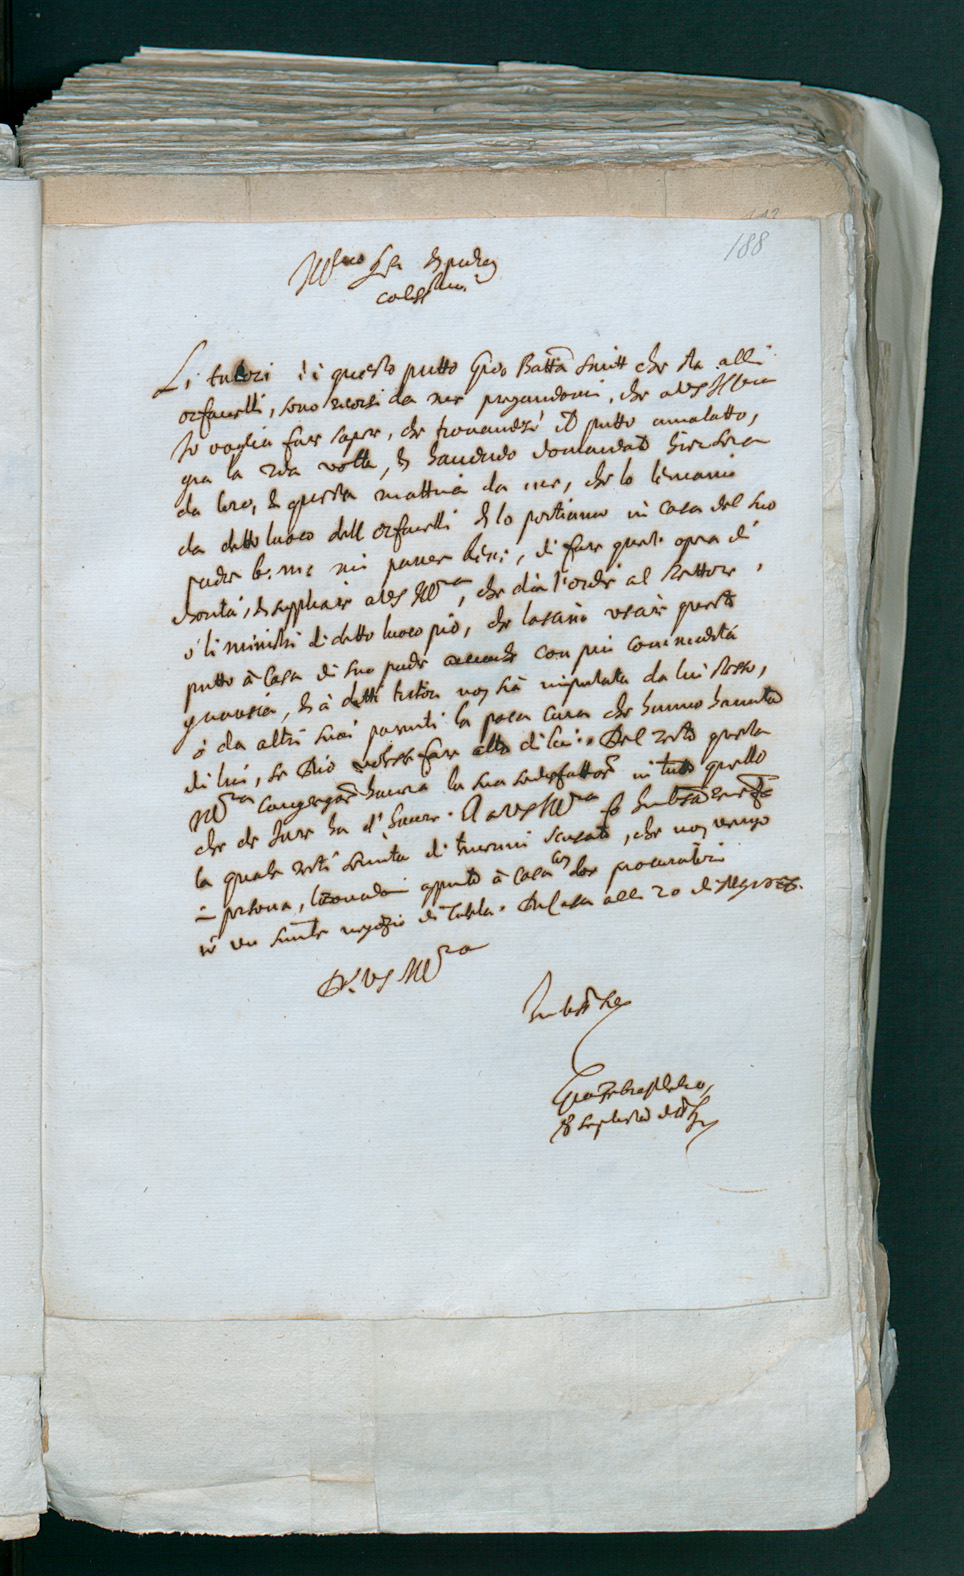 188
Ill.mo Sig.r et padron
coles.mo
Li tutori di questo putto Gio. Batta Smitt che sta alli
orfanelli, sono ricorsi da me pregandomi, che a VS Ill.ma
Io voglia far sapere, che trovandosi il putto amalatto,
gia la 2da volta, et havendo domandato hiersera
da loro, et questa mattina da me, che lo levamo
da detto luoco dell orfanelli et lo portiamo in casa del suo
padre b. me. mi parve bene, di fare questa opera di
bontà, et supplicare a VS Ill.ma, che dia l'ordine al Rettore,
ò li ministri di detto luoco pio, che lascino uscire questo
putto à casa di suo padre con più commodità
, et à detti tutori non sia imputata da lui stesso,
ò da altri suoi parenti la poca cura che hanno havuta
di lui, se Dio volesse far altro di lui. Del resto questa
Ill.ma Congregat.ne haverà la sua sodisfattione in tutto quello
che de Jure ha d'havere. A VS Ill.ma fo
la quale resti servita di havermi scusato, che non vengo
in persona, trovandomi appunto à casa con doi procuratori
in un simile negozio di . Di Casa alli 20 di
Di VS Ill.ma